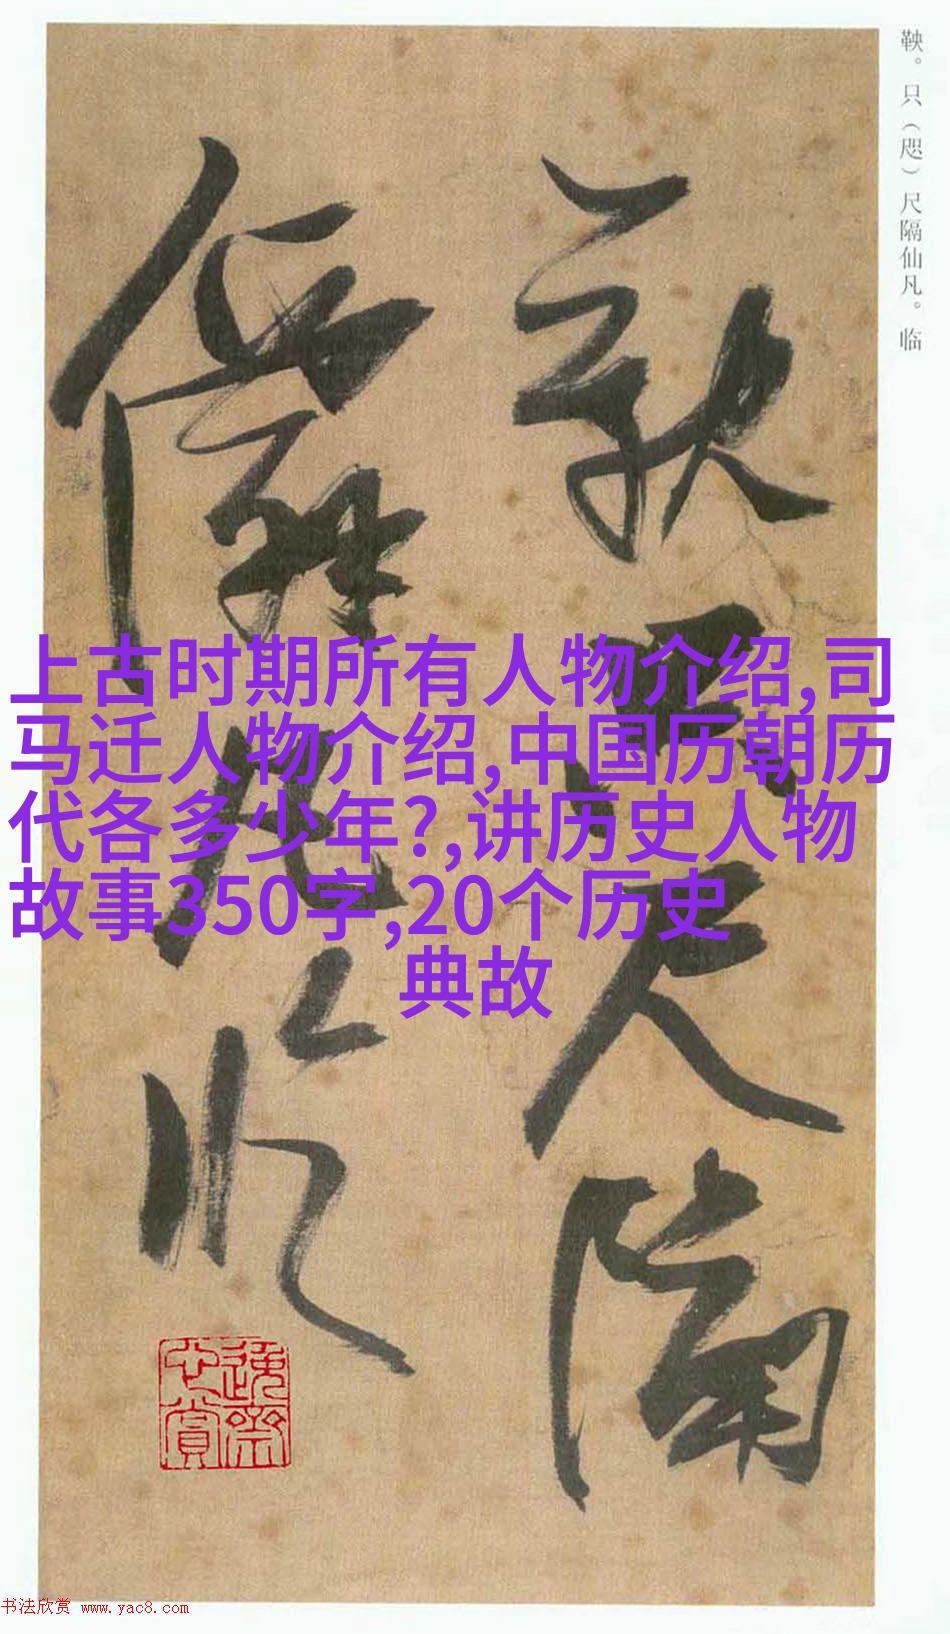 鞅。只（咫）尺隔仙凡。临
歌只尺隔
僊凡临
上古时期所有人物介绍,司
马迁人物介绍,中国历朝历
代各多少年?,讲历史人物
故事350字,20个历史
典故
书法欣赏 www.yac8.com